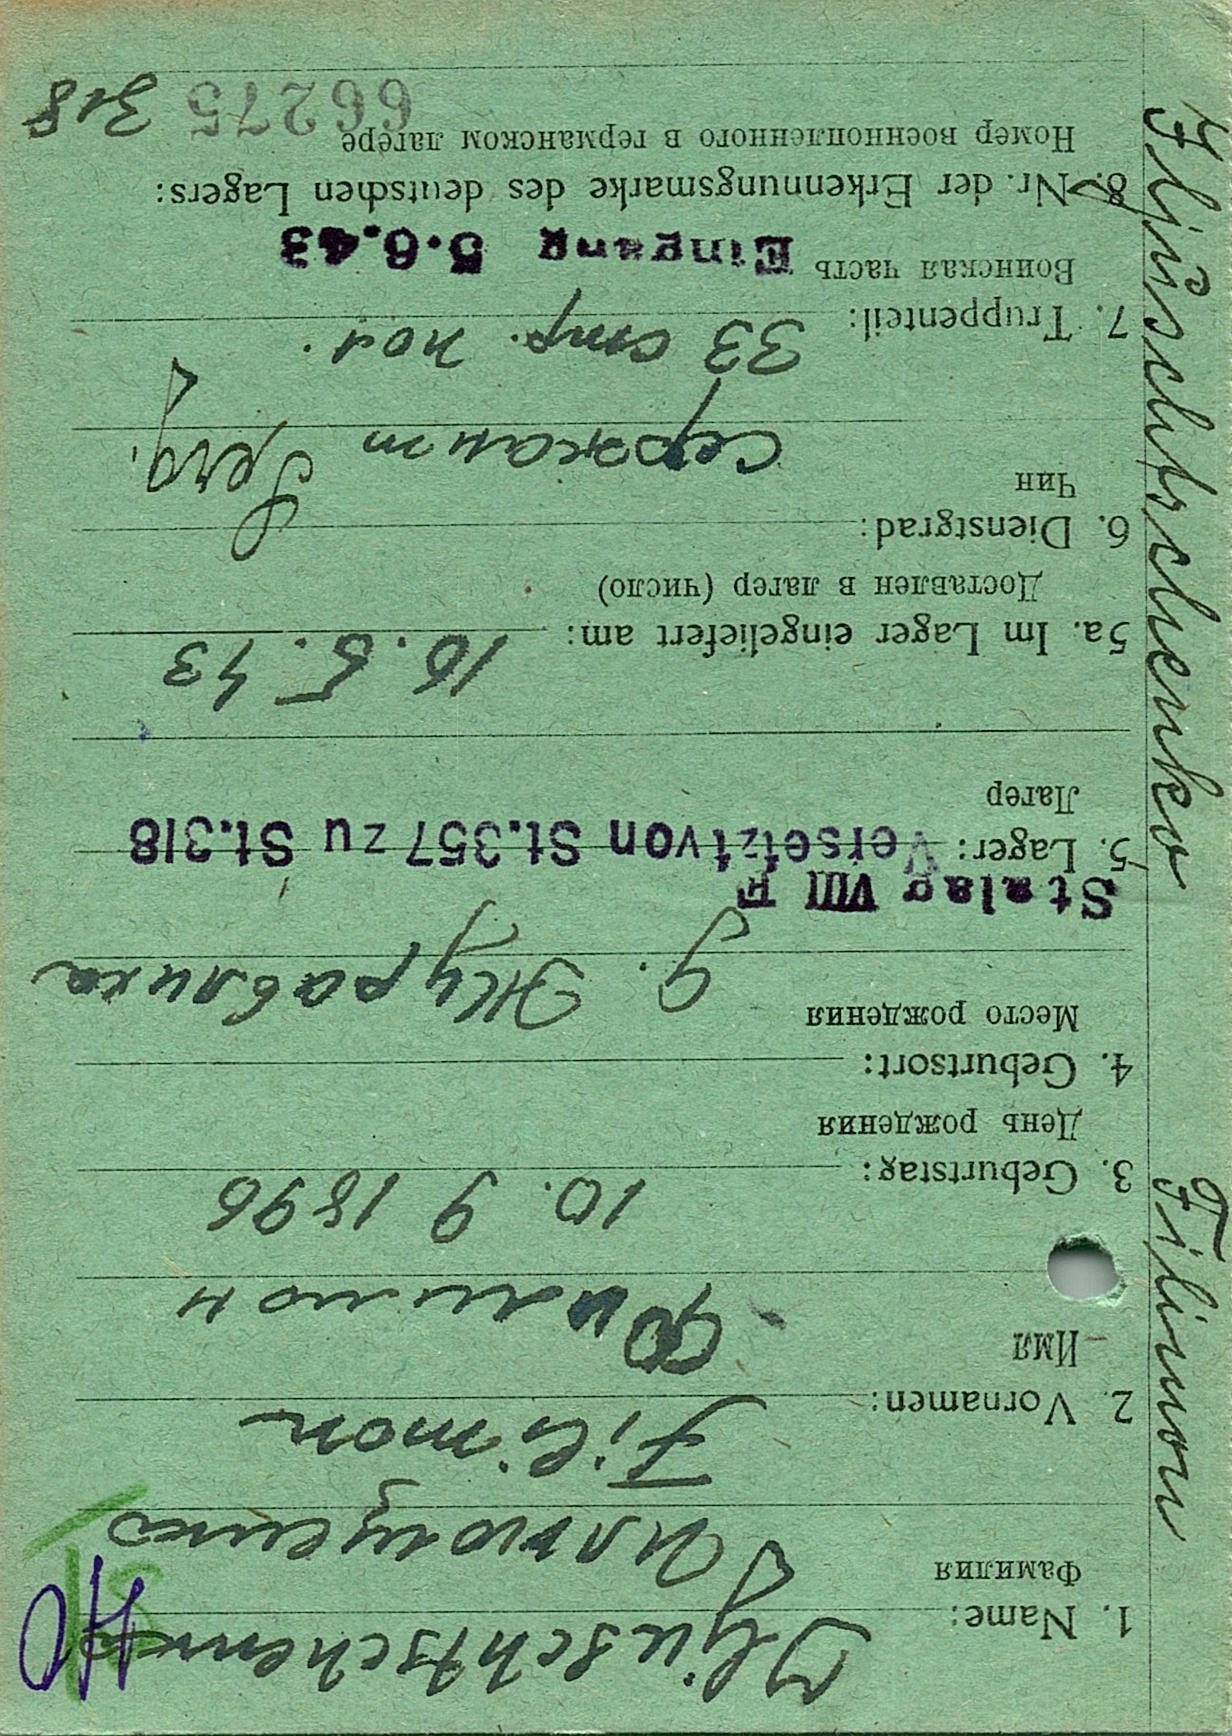 Iljuschtschenko Filimon
1. Name: Iljuschtschenko
Фамилия Ильющенко
Filimon
2. Vornamen:
Имя Филимон
3. Geburtstag: 10. 9 1896
День рождения
4. Geburtsort:
Место рождения д. Журавлиха
Stalag VIII F
5. Lager: Versetzt von St.357 zu St.318
Лагер
5a. Im Lager eingeliefert am: 16. 5. 43
Доставлен в лагер (число)
6. Dienstgrad: Serg.
Чин сержант
7. Truppenteil: 33 стр. пол.
Воинская часть Eingang 5.6.43
8. Nr. der Erkennungsmarke des deutschen Lagers:
Номер военнопленного в германском лагере
66275 318